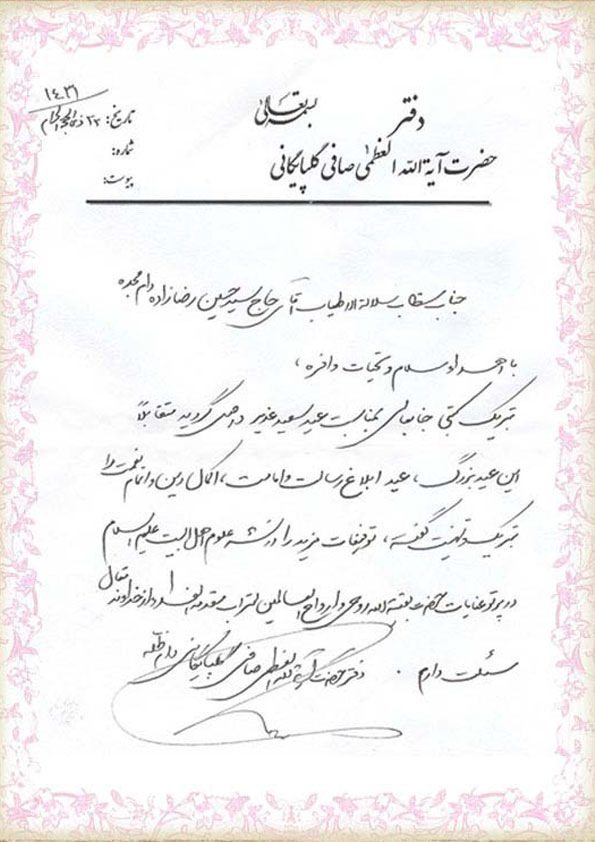 بسمه تعالی
دفتر
حضرت آیة الله العظمی صافی گلپایگانی
۱۴۳۱
تاریخ: ۲۲ ذی الحجة الحرام
شماره:
پیوست:
جناب مستطاب سلالة الاطیاب آقای حاج سید حسین رضازاده دام مجده
با اهداء سلام و تحیات وافره،
تبریک کتبی جنابعالی بمناسبت عید سعید غدیر واصل گردید متقابلاً
این عید بزرگ، عید ابلاغ رسالت و امامت، اکمال دین و اتمام نعمت را
تبریک و تهنیت گفته، توفیقات مزید را در نشر علوم اهل البیت علیهم السلام
در پرتو عنایات حضرت بقیة الله روحی و ارواح العالمین لتراب مقدمه الفداء از خداوند متعال
مسئلت دارم.
دفتر حضرت آیة الله العظمی صافی گلپایگانی دام ظله